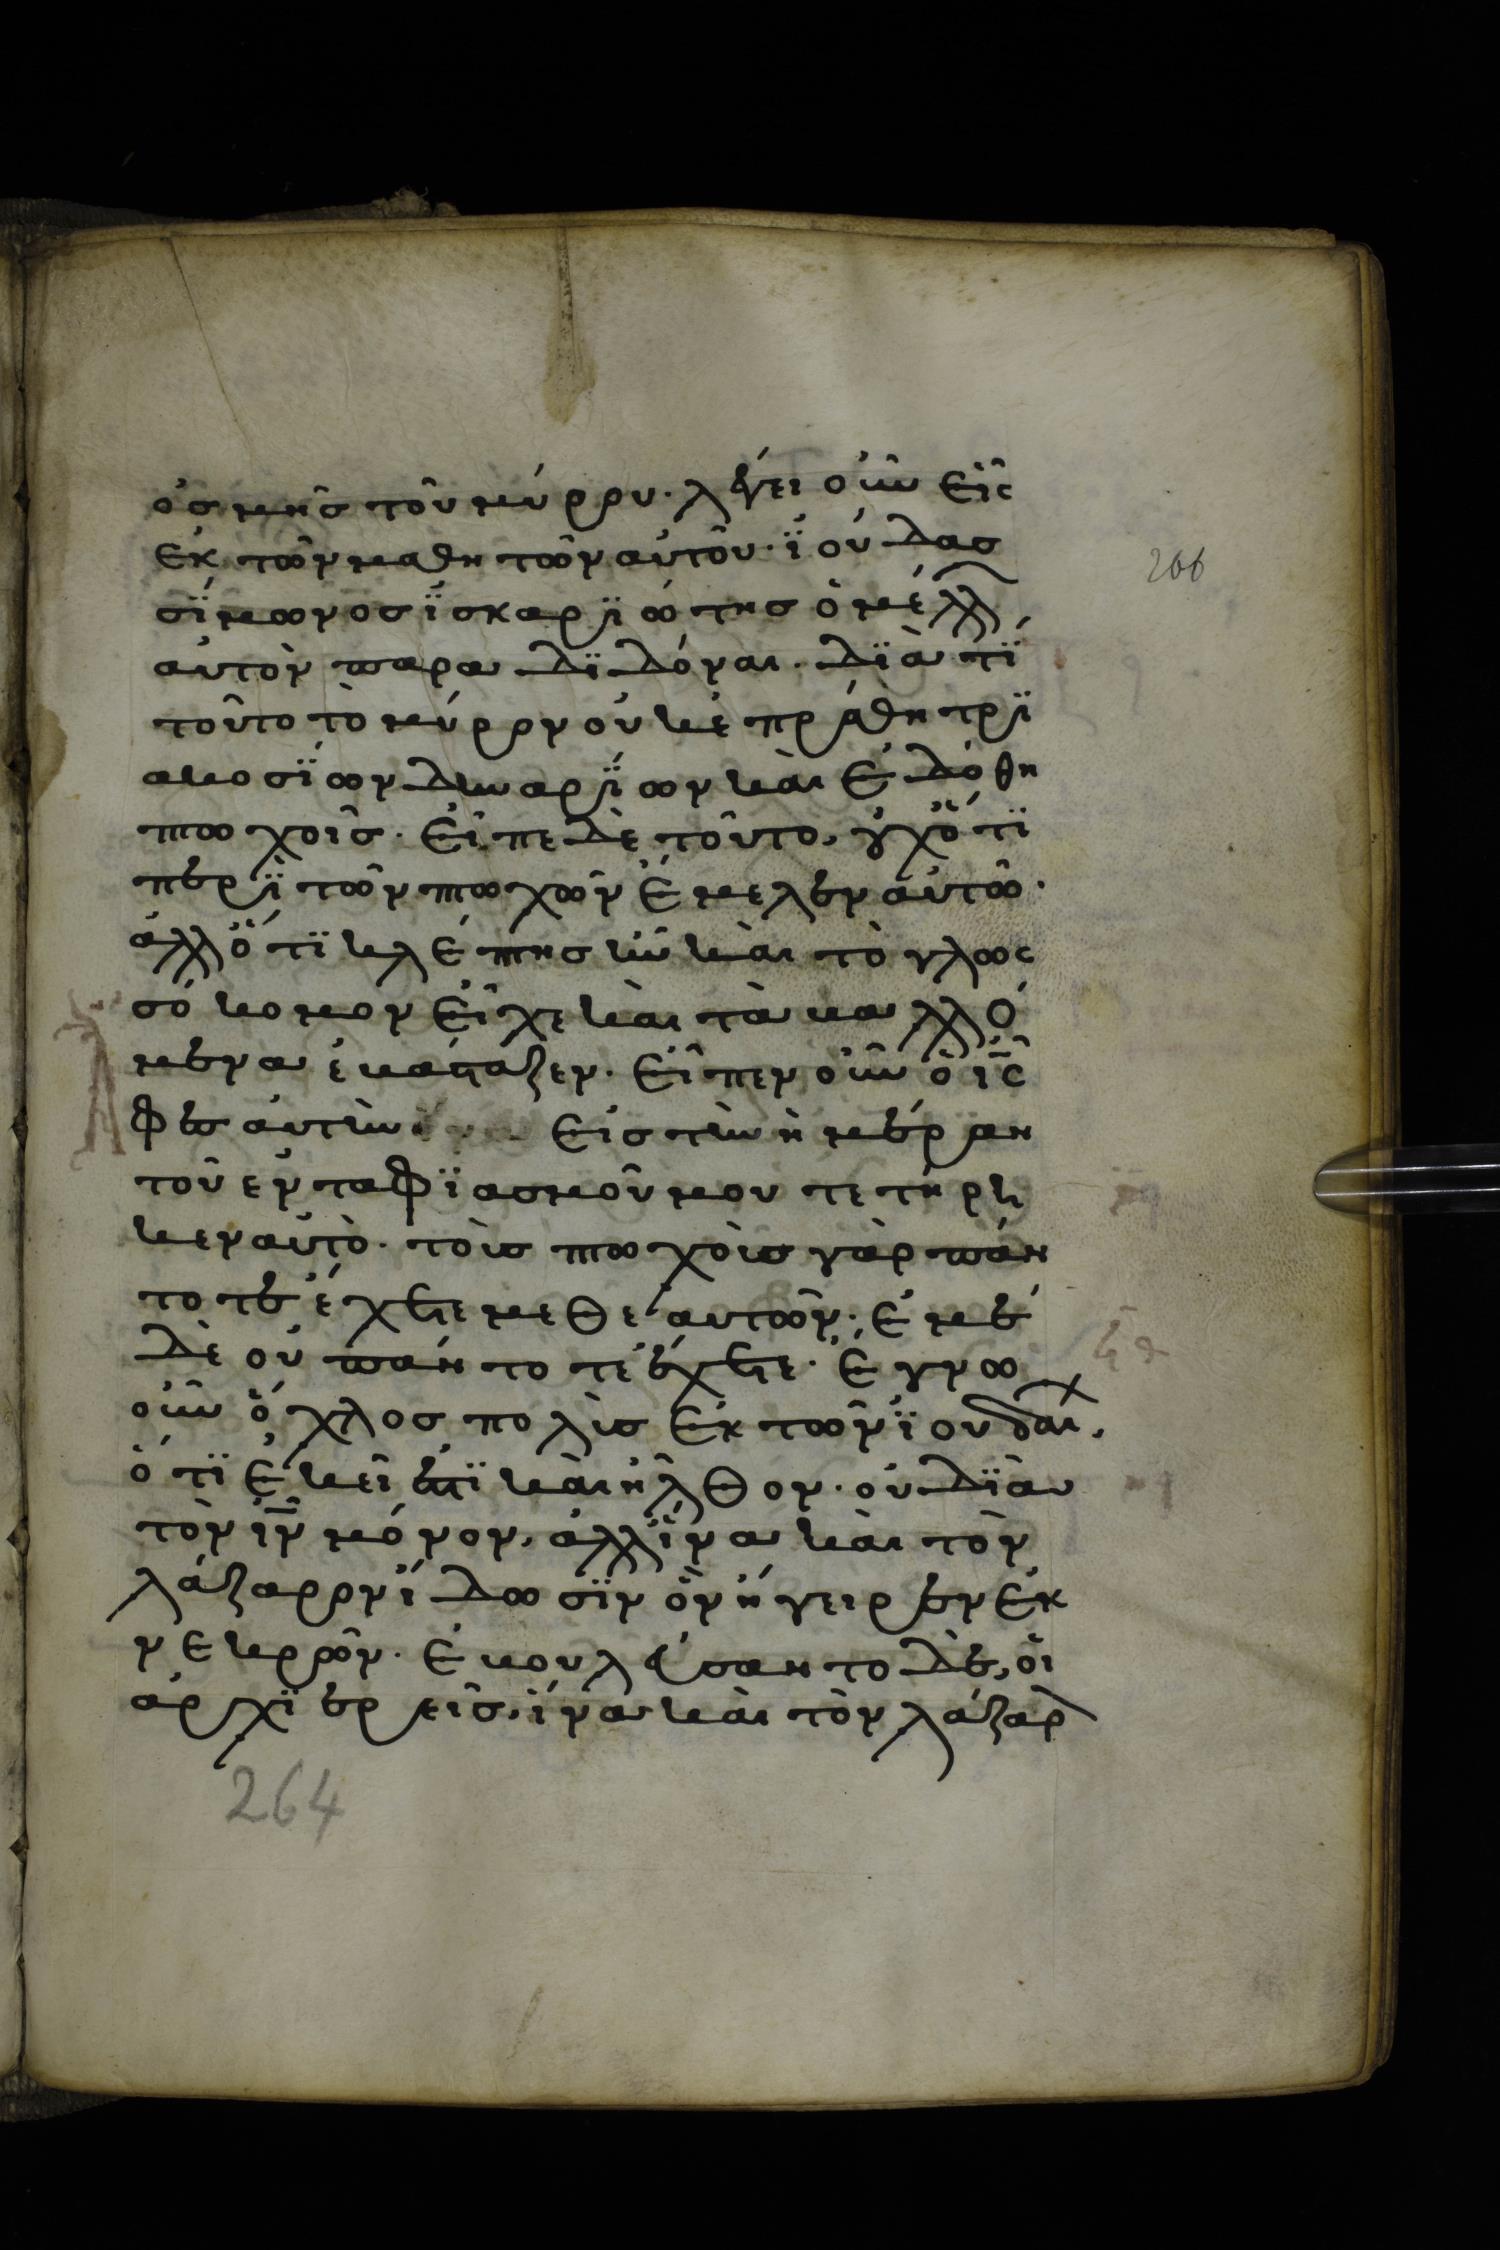 ὀσμῆσ τοῦ μύρου· λέγει οὖν εἷς
ἐκ τῶν μαθητῶν αὐτοῦ· ϊούδασ
σίμωνοσ ϊσκαριώτησ ὁ μέλλ
αὐτὸν παραδϊδόναι· δϊὰ τί
τοῦτο τὸ μύρον οὐκ ἐπράθη τρϊ
ακοσΐων δηναρΐων καὶ ἐδόθη
πτωχοῖσ· εἶπε δὲ τοῦτο, οὐχ ὅτϊ
περὶ τῶν πτωχῶν ἔμελεν αὐτῶ·
ἀλλ ὅτϊ κλέπτησ ἦν καὶ τὸ γλως
σόκομον εἶχε καὶ τὰ βαλλό
μενα ἐβάσταζεν· εἶπεν οὖν ὁ ις
ἄφεσ αὐτὴν εἰσ τὴν ημέραν
τοῦ ενταφϊασμοῦ μου τετήρη
κεν αὐτὸ· τοὺσ πτωχοὺσ γὰρ πάν
τοτε ἔχετε μεθ ἑαυτῶν· ἐμὲ
δὲ οὐ πάντοτε ἔχετε· Ἔγνω
οὖν ὄχλοσ πολὺσ ἐκ τῶν ϊουδαι,
ὅτϊ ἐκεῖ ἐστϊ καὶ ἦλθον· οὐ δϊὰ
τὸν ιν μόνον, ἀλλ ἵνα καὶ τὸν
λάζαρον ἴδωσϊν ὃν ἤγειρεν ἐκ
νεκρῶν· ἐβουλεύσαντο δὲ, οἱ
ἀρχϊερεῖσ, ἵνα καὶ τὸν λάζαρ
266
264